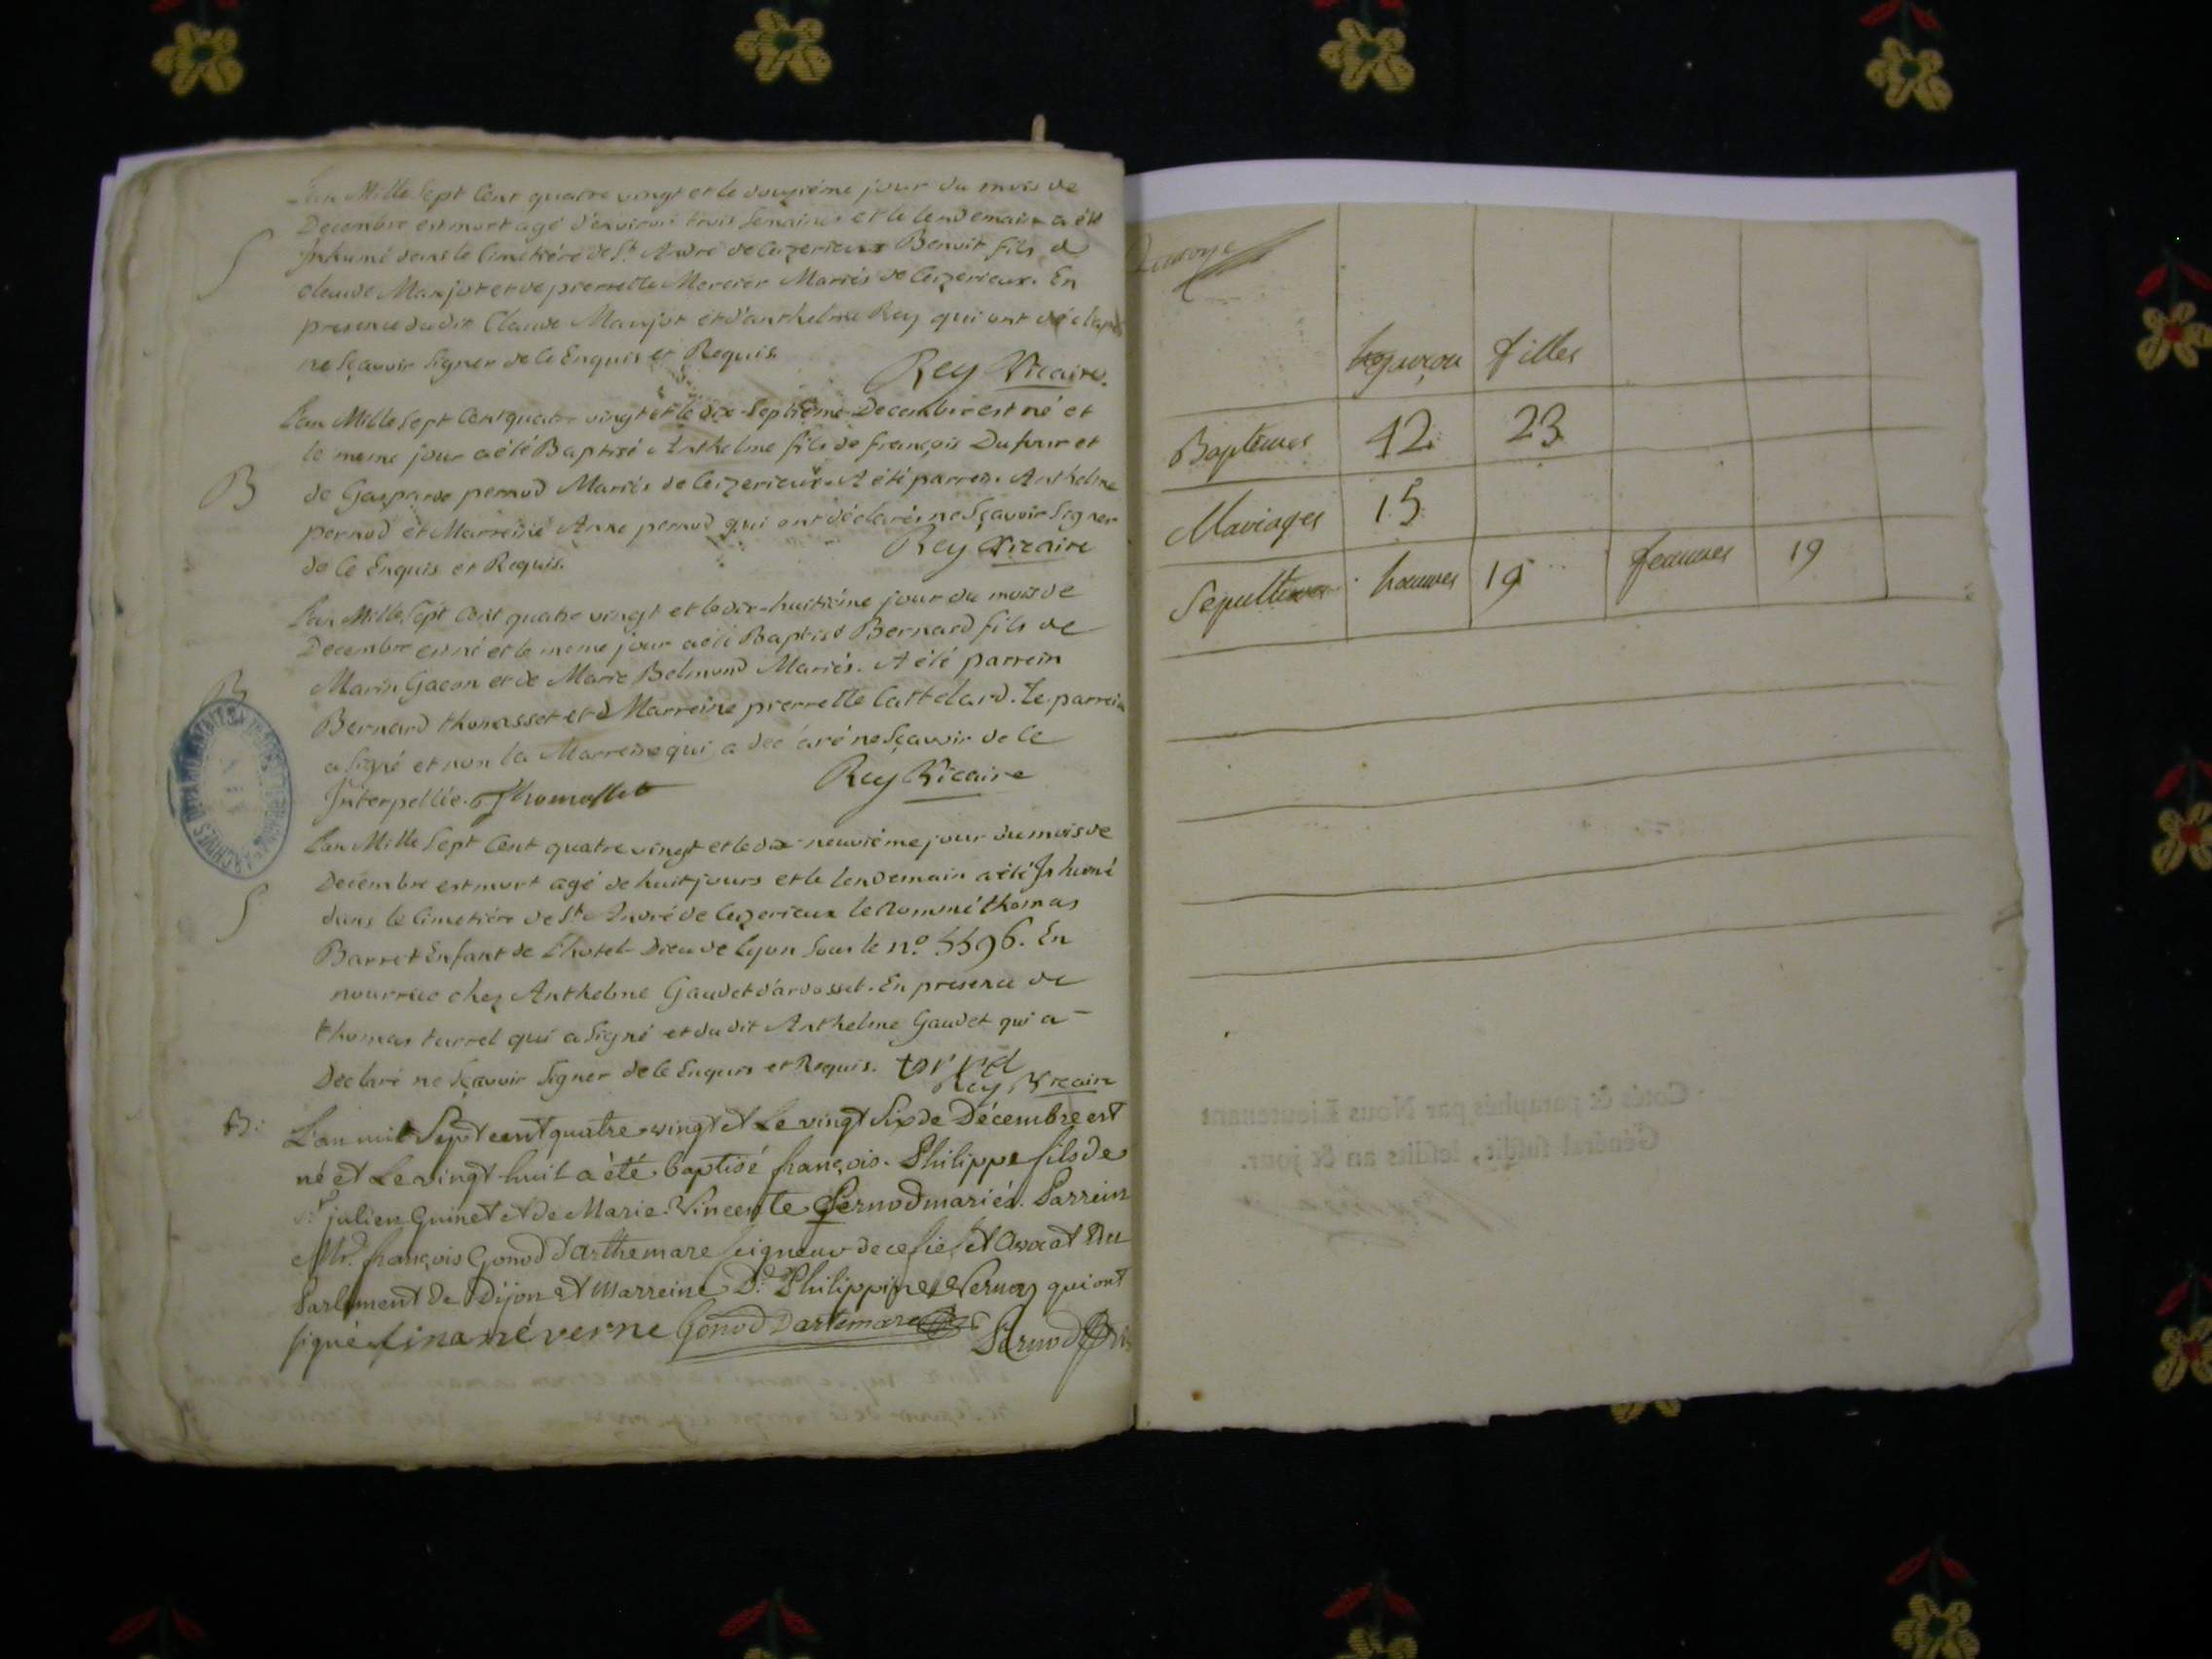 L'an Mille Sept Cent quatre vingt et le douzième jour du mois de
Decembre est mort agé d'environ trois Semaines et le lendemain a été
S Inhumé dans le Cimetière de St. André de Ceizerieux Benoit fils de
claude Manjot et de pierrette Mercier Mariés de Ceizerieux. En
presence dudit Claude Manjot et d'anthelme Rey qui ont déclaré
ne Sçavoir Signer de ce Enquis et Requis.
Rey Vicaire.
L'an Mille Sept Cent quatre vingt et le dix-Septième Decembre est né et
le meme jour a été Baptisé Anthelme fils de françois Dufour et
B de Gasparde pernod Mariés de Ceizerieux. A été parrein Anthelme
pernod et Marreine Anne pernod qui ont déclarés ne Sçavoir Signer
de ce Enquis et Requis.
Rey Vicaire
L'an Mille Sept Cent quatre vingt et le dix-huitième jour du mois de
Decembre est né et le meme jour a été Baptisé Bernard fils de
B Marin Gacon et de Marie Belmond Mariés. A été parrein
Bernard thomasset et Marreine pierrette Cattelard. Le parrein
a Signé et non la Marreine qui a declaré ne Sçavoir de ce
Interpellée. Thomasset Rey Vicaire
L'an Mille Sept Cent quatre vingt et le dix-neuvième jour du mois de
Decembre est mort agé de huit jours et le lendemain a été Inhumé
S dans le Cimetière de St. André de Ceizerieux le Nommé thomas
Barret Enfant de L'hotel-Dieu de Lyon Sous le no. 5596. En
nourrice chez Anthelme Gaudet d'ardosset. En presence de
thomas turrel qui a Signé et dudit Anthelme Gaudet qui a
Déclaré ne Sçavoir Signer de ce Enquis et Requis. torrel
Rey Vicaire
B: L'an mil Sept cent quatre vingt et Le vingt Six de Décembre est
né et Le vingt huit a été baptisé françois-Philippe fils de
Sr. julien Guinet et de Marie-Vincente Pernod mariés. Parrein
Mr. françois Gonod d'arthemare Seigneur de ce fief et avocat au
Parlement de Dijon et Marreine De. Philippine qui ont
signé Gonod Dartemare Pernod
garçon filles
Baptêmes 42 23
Mariages 15
Sépultures hommes 19 femmes 19
Cotés & paraphés par Nous Lieutenant
Général susdit, lesdits an & jour.